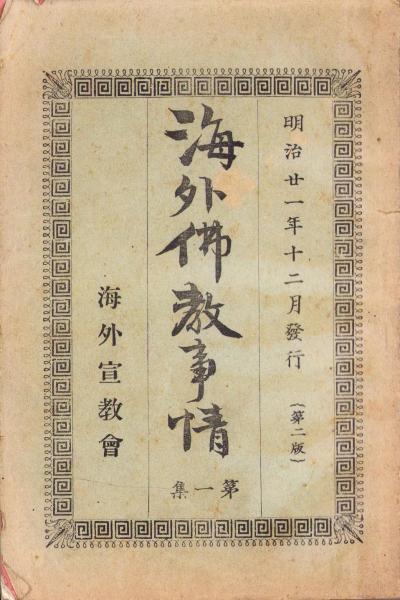 明治廿一年十二月發行（第二版）
海外佛教事情
第一集
海外宣教會